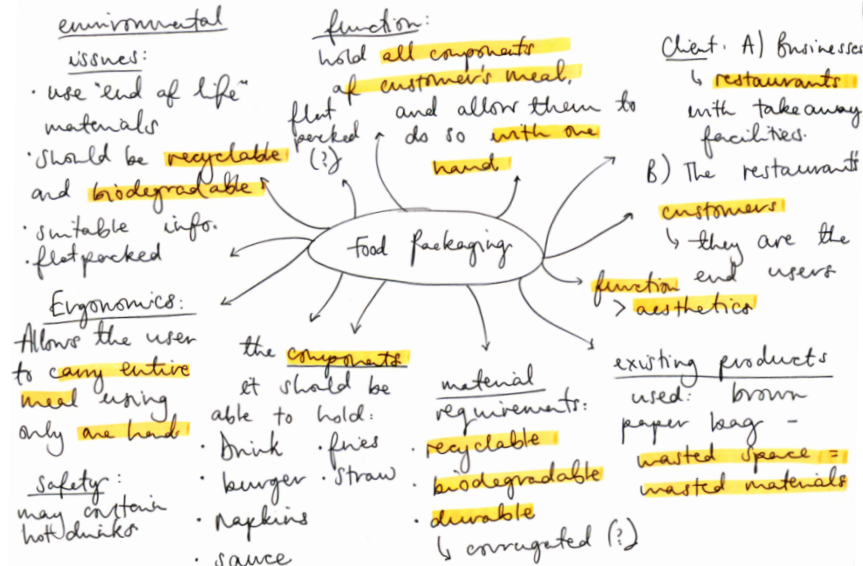 environmental
issues:
· use "end of life"
materials
· should be recyclable
and biodegradable
· suitable info.
· flatpacked
function:
hold all components
of customer's meal,
and allow them to
do so with one
hand
flat
packed
(?)
Client: A) Businesses
↳ restaurants
with takeaway
facilities.
B) The restaurants
customers
↳ they are the
end users
function
> aesthetics
Food Packaging
Ergonomics:
Allows the user
to carry entire
meal using
only one hand
safety:
may contain
hot drinks
the components
it should be
able to hold:
· Drink
· burger
· napkins
· sauce
· fries
· straw
material
requirements:
· recyclable
· biodegradable
· durable
↳ corrugated (?)
existing products
used: brown
paper bag –
wasted space =
wasted materials